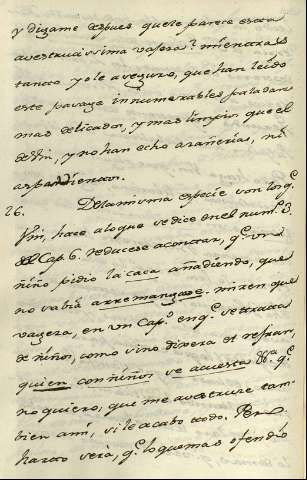 y digame despues que le parece esta
avestrucissima vasera? mientras
tanto yo le aseguro, que han leido
este pasage innumerables paladares
mas delicados, y mas limpios que el
y no han echo arañerias, ni
26. De la misma especie son los q.
hace a lo que se dice en el num. 3.
Cap. 6. reducese a contar, q. un
niño pidio la caca añadiendo, que
no sabia arremangarse. miren que
en un Cap.º en q. se trata
de niños, como vino diera el refran,
quien con niños se acuesta &.ª q.
no quiero, que me avestruze tam-
bien ami, si le acabo todo.
harto vera, q. lo que mas ofendio